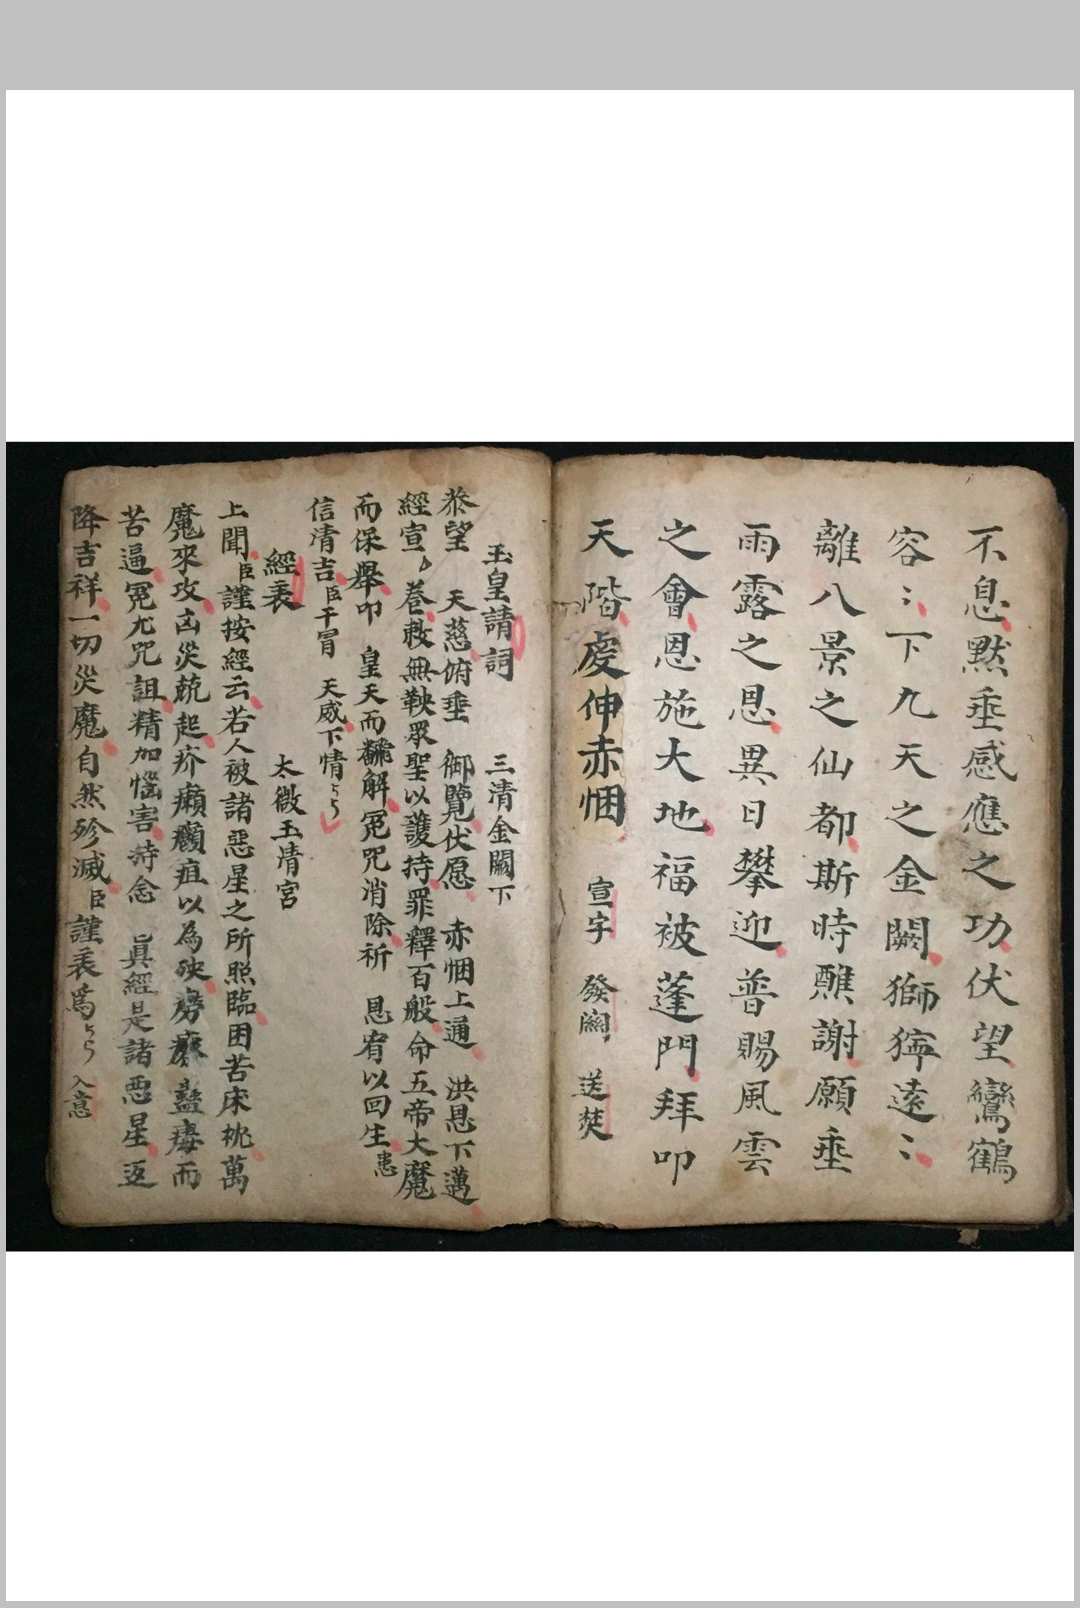 不息黙垂感應之功伏望鸞鶴
容〻下九天之金闕獅獰遠〻
離八景之仙都斯時醮謝願垂
雨露之恩異日攀迎普賜風雲
之會恩施大地福被蓬門拜叩
天階虔伸赤悃 宣字 發闗 送焚
玉皇請詞 三清金闕下
叅望 天慈俯垂 御覽伏愿 赤悃上通 洪恩下邁
經宣卷救無鞅眾聖以護持罪釋百般命五帝大魔
而保舉叩 皇天而解冤咒消除祈 恩宥以回生患
信清吉臣干冐 天威下情〻
經表 太微玉清宮
上聞臣謹按經云若人被諸惡星之所照臨困苦床枕萬
魔來攻凶災兢起疥癩疽以為殃癆蠱毒而
苦逼冤尤咒詛精加惱害持念 眞經是諸惡星返
降吉祥一切災魔自然殄滅臣謹表爲〻入意